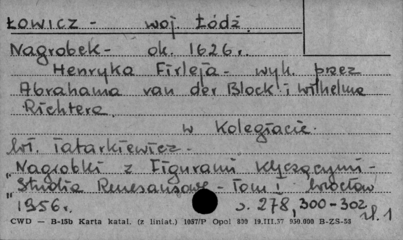 Łowicz - woj. Łódź.
Nagrobek - ok. 1626 r.
Henryka Firleja - wyk. przez
Abrahama van der Block i Wilhelma
Richtera.
w Kolegiacie.
Wł. Tatarkiewicz -
"Nagrobki z Figurami Klęczącymi -
"Studia Renesansowe - Tom I Wrocław
1956. s. 278, 300-302
CWD — B-15b Karta katal. (z liniat.) 1057/P Opol